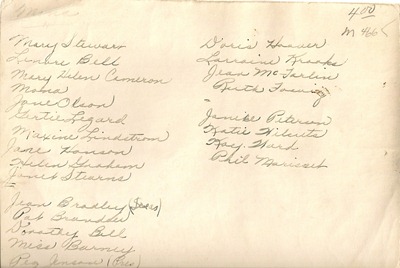 4.00
M 466
Mary Stewart
Lenore Bell
Mary Helen Cameron
Moma
Jane Olson
Gertie Legard
Maxine Lindstrom
Jane Hanson
Helen Graham
Janet Stearns
Jean Bradley (Texas)
Pat Brandt
Dorothy Ball
Miss Barney
Peg Jenson (Pres)
Doris Hoover
Lorraine Krooks
Jean McFarlin
Ruth
Janice Peterson
Katie Wilerits
Kay Ward
Phil